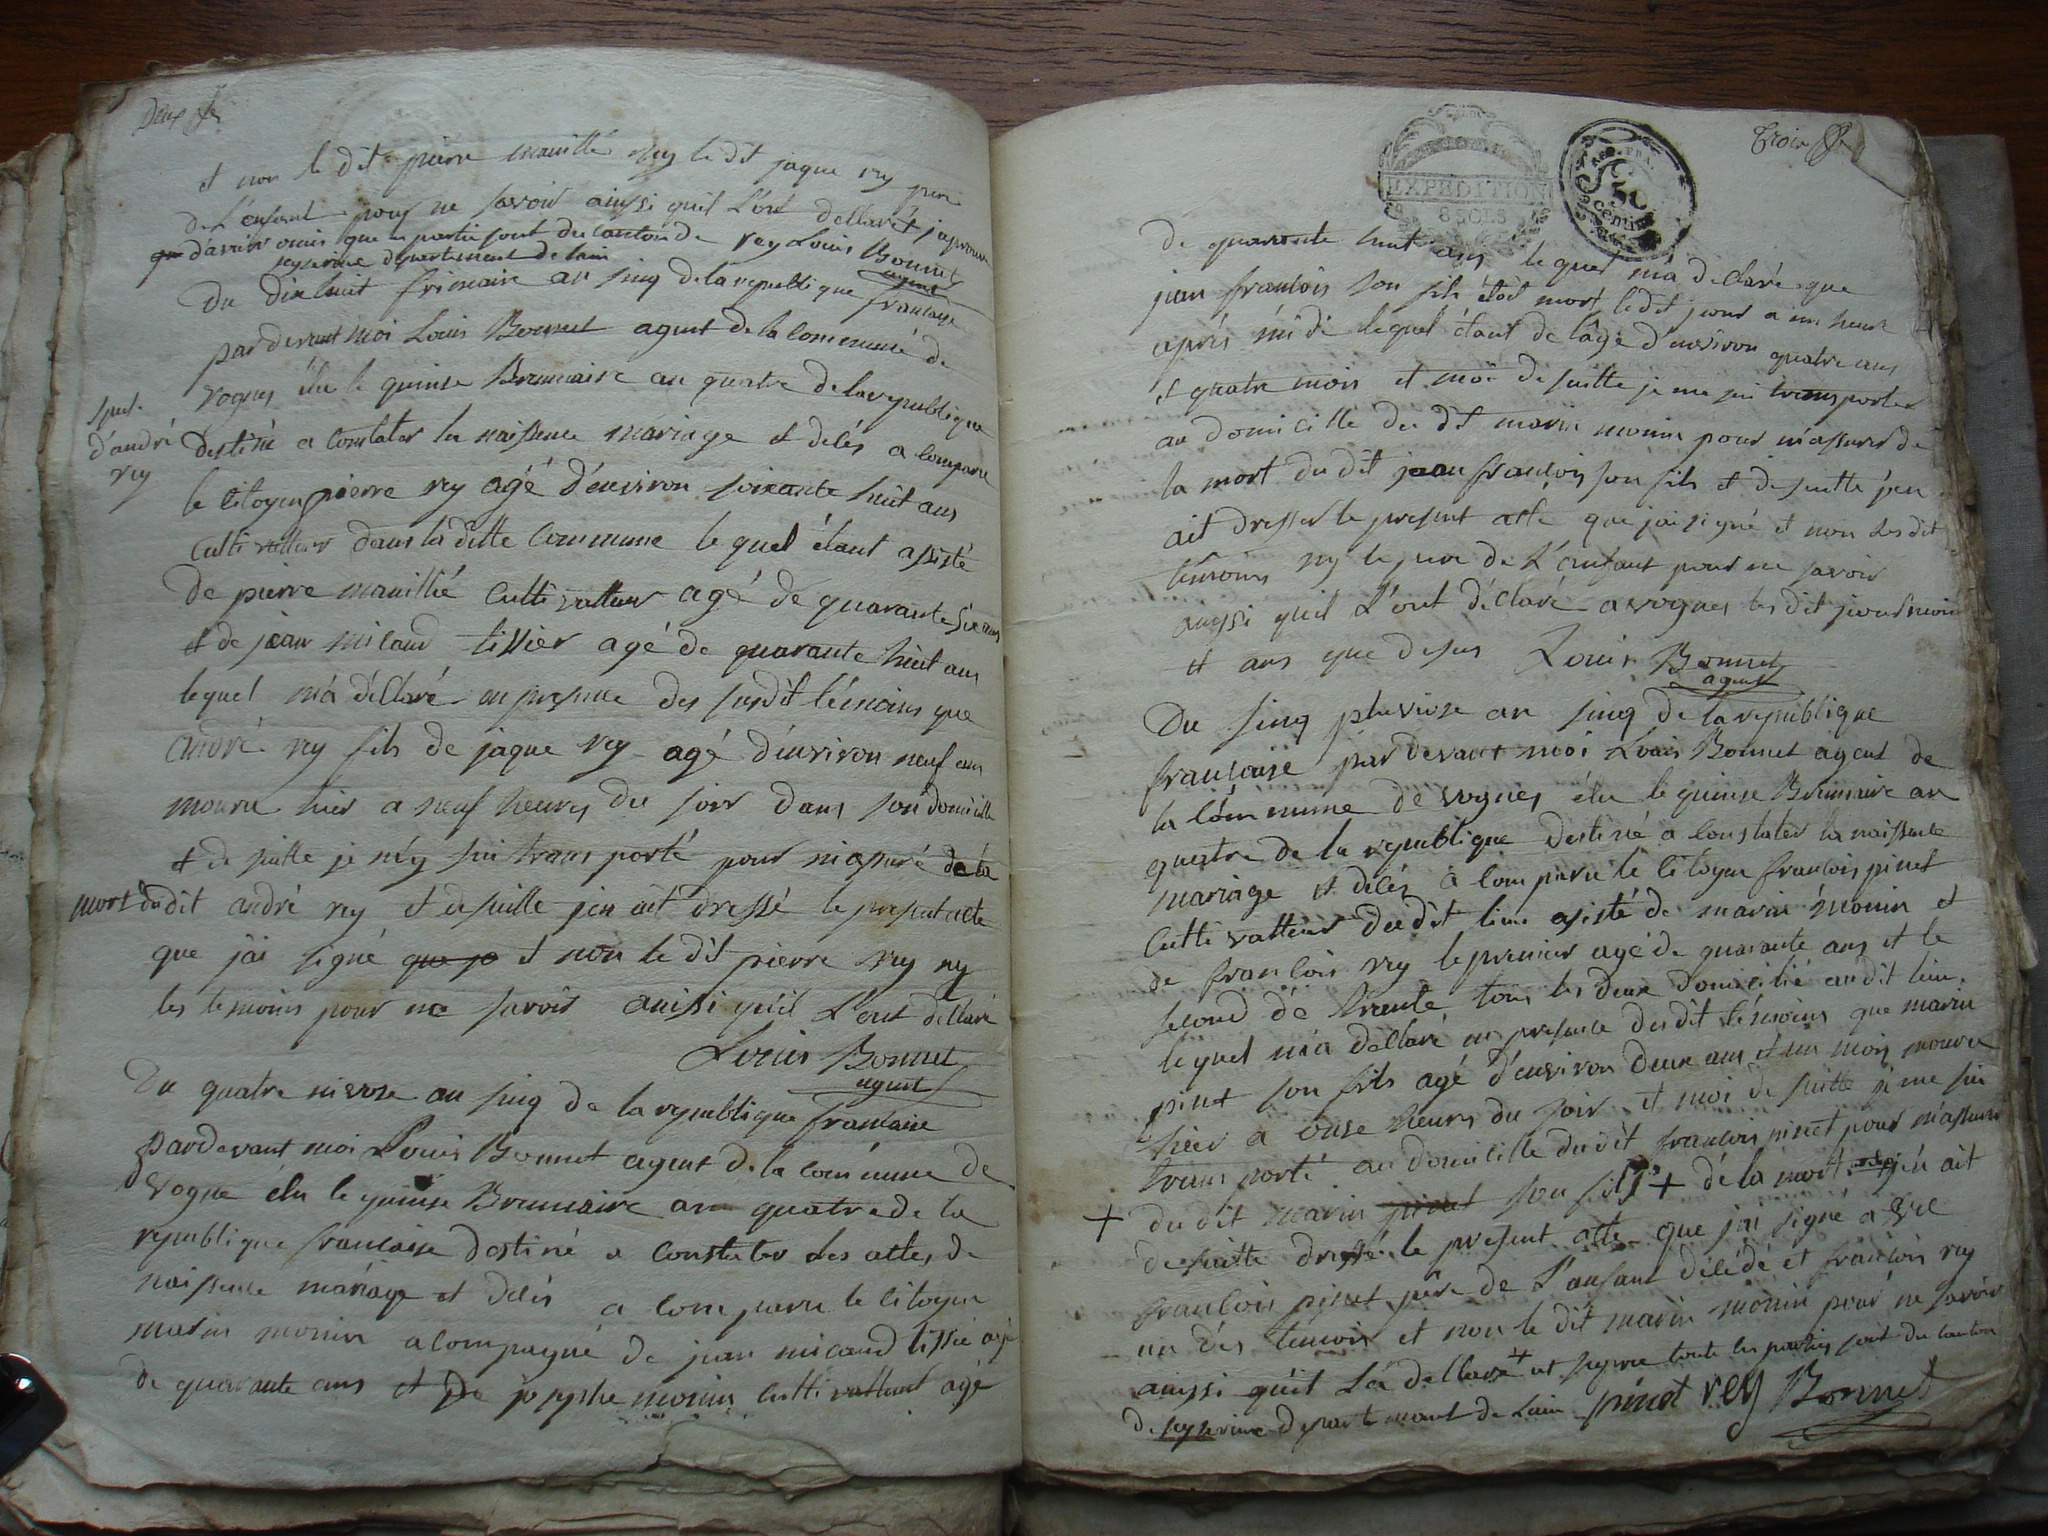 Deux
et non le dit pierre mauillié ny le dit jaque rey pere
de L'enfant pour ne savoir ainssi quil L'ont dellaré et japrouve
davoir omis que les partie sont du canton de Louis Bonnet
seyserieu departement de lain agent
Du dix huit frimaire an sinq de la republique francaise
pardevant moi Louis Bonnet agent de la commune de
vognes élu le quinse Brumaire an quatre de la republique
destiné a constater la naissence mariage et décés a comparu
spul.
d'andré
rey
le citoyen pierre rey agé d'environ soixante huit ans
cultivatteur dans la ditte commune le quel étant assisté
de pierre mauillié cultivatteur agé de quarante six ans
et de jean micaud tissier agé de quarante huit ans
lequel m'a déllaré en presence des susdit témoins que
andré rey fils de jaque rey agé d'environ neuf ans
mouru hier a neuf heures du soir dans son domicille
et de suitte je m'y sui transporté pour m'assuré de la
mort dudit andré rey et de suitte j'en ait dressé le present acte
que j'ai signé que je et non le dit pierre rey ny
les temoins pour ne savoir ainssi qu'il L'ont dellaré
Louis Bonnet
agent
Du quatre nivose an sinq de la republique francaise
Pardevant moi Louis Bonnet agent de la commune de
vogne élu le quinse Brumaire an quatre de la
republique francaise destiné a constater les actes de
naissence mariage et décés a comparu le citoyen
marin monin acompagné de jean micaud tissié agé
de quarante ans et de josephe monin cultivatteur agé
Trois
EXPEDITION
8 SOLS
REP. FRA.
50
centim
de quarante huit ans le quel m'a declaré que
jean francois son fils étoit mort le dit jour a un heure
aprés midi lequel étant de l'âge d'environ quatre ans
et quatre mois et moi de suitte je me sui transporter
au domicille du dit marin monin pour m'assurer de
la mort du dit jean francois son fils et de suitte j'en
ait dresser le present acte que j'ai signé et non les dit
témoins ny le pere de L'enfant pour ne savoir
ainssi quil L'ont déclaré a vognes les dit jour mois
et ans que desus Louis Bonnet
agent
Du sinq pluviose an sinq de la republique
francoise pardevant moi Louis Bonnet agent de
la commune de vognes élu le quinse Brumaire an
quatre de la republique destiné a constater la naissence
mariage et décés a comparu le citoyen francois pinet
cultivatteur du dit lieu asisté de marin monin et
de francois rey le premier agé de quarante ans et le
second de trente tous les deux domicilié au dit lieu
le quel m'a déllaré en presence desdit témoins que marin
pinet son fils agé d'environ deux ans et un mois mouru
hier a onse heures du soir et moi de suitte je me sui
transporté au domicille dudit francois pinet pour m'assurer
+ du dit marin pinet son fils + de la mort j'en ait
de suitte dressé le present acte que j'ai signé avec
francois pinet père de L'anfant décédé et francois rey
un des témoin et non le dit marin monin pour ne savoir
ainssi qu'il La dellaré + et toute les parties sont du canton
de seyserieu departement de Lain pinet rey Bonnet